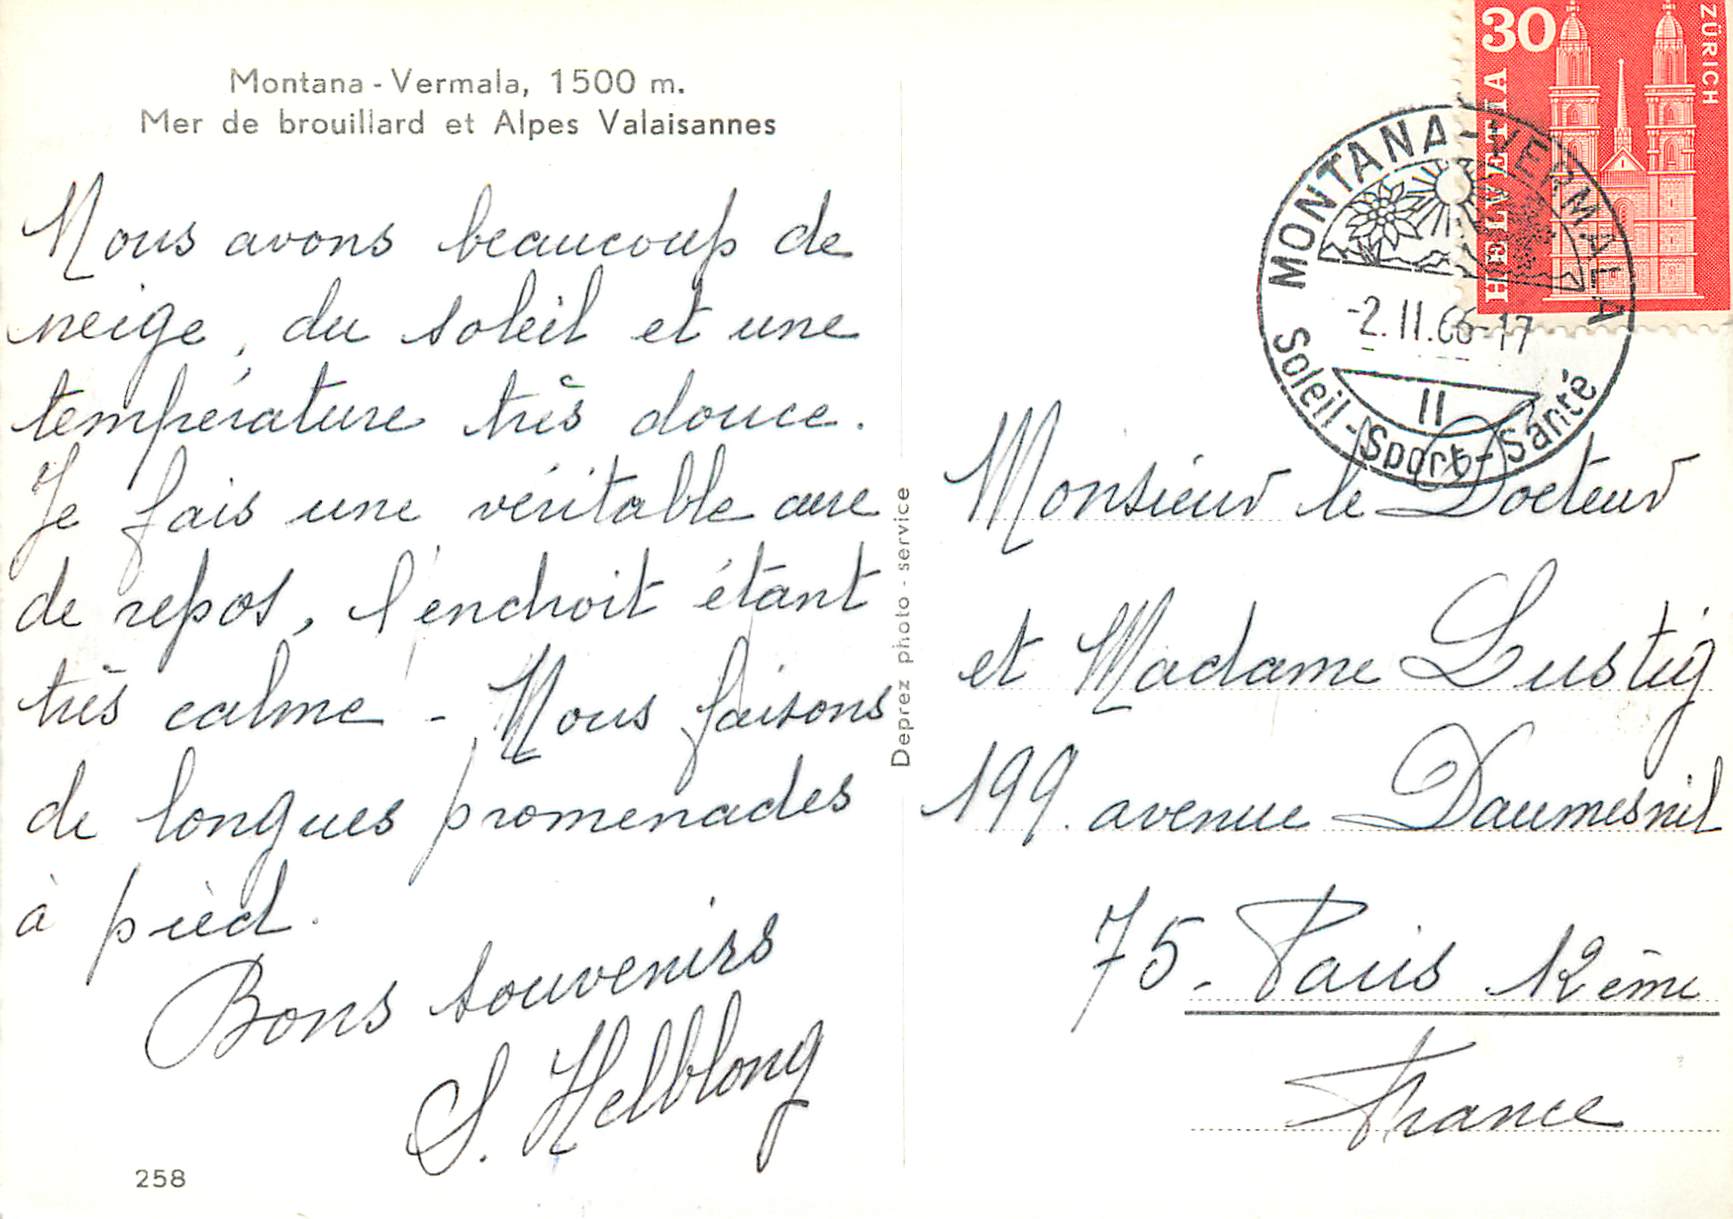 Montana - Vermala, 1500 m.
Mer de brouillard et Alpes Valaisannes
Nous avons beaucoup de
neige, du soleil et une
température très douce.
Je fais une véritable cure
de repos, l'endroit étant
très calme - Nous faisons
de longues promenades
à pied.
Bons souvenirs
S. Helblong
258
Deprez photo - service
30
HELVETIA
ZÜRICH
MONTANA-VERMALA
-2.II.66-17
II
Soleil-Sport-Santé
Monsieur le Docteur
et Madame Lustig
199. avenue Daumesnil
75. Paris 12ème
France